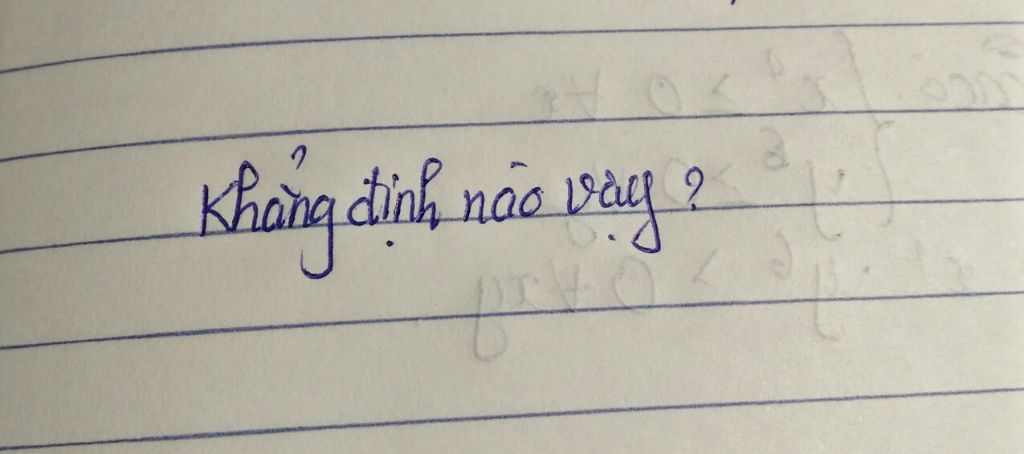 Khẳng định nào vạy?